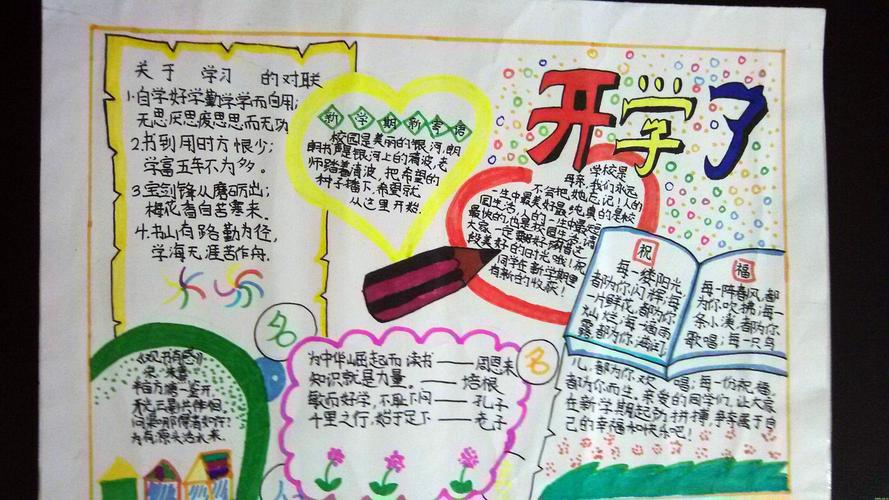 关于 学习 的对联
1.自学好学勤学学而自用;
无思厌思废思思而无功
2.书到用时方恨少;
学富五车不为多。
3.宝剑锋从磨砺出;
梅花香自苦寒来.
4.书山有路勤为径,
学海无涯苦作舟.
新学期新寄语
校园是美丽的银河,朗
朗书声是银河上的清波,老
师踏着清波,把希望的
种子播下,希望就
从这里开始.
开学了
学校是
母亲,我们永远
不会把她忘记!人的
一生中最美好最纯真的是校
园生活,人的一生中最短
最快的,也是校园生活,请
大家一定要好好珍惜这
段美好的时光哦!祝
同学在新学期里
有新的收获!
祝
每一缕阳光
都为你闪烁;每
一片鲜花都为你
灿烂;每一滴雨
露都为你滋润;
福
每一阵春风,都
为你吹拂;每一
条小溪,都为你
歌唱;每一只鸟
儿,都为你欢唱;每一份祝福,
都为你而生.亲爱的同学们,让大家
在新学期起动拼搏,争争属于自
己的幸福和快乐吧!
名
名
为中华崛起而读书——周恩来
知识就是力量。——培根
敏而好学,不耻下问——孔子
千里之行,始于足下——老子
《观书有感》
宋 朱熹
半亩方塘一鉴开
天光云影共徘徊.
问渠那得清如许?
为有源头活水来.